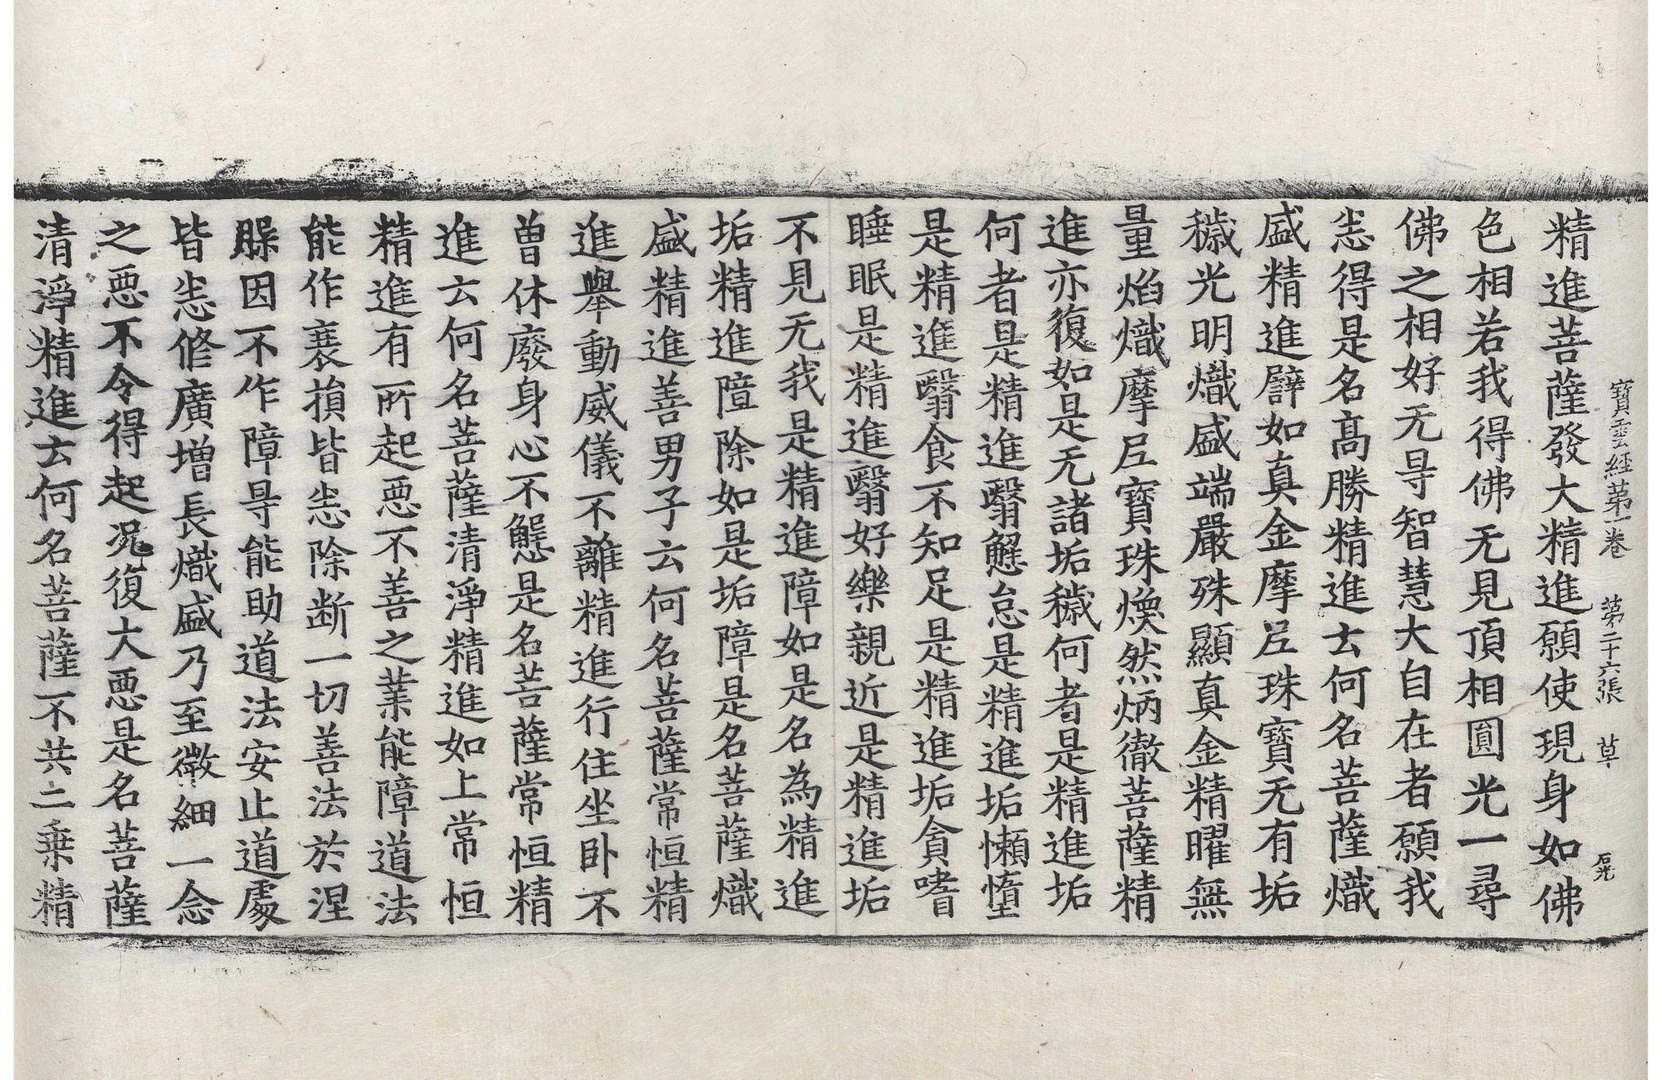 寶雲經苐一卷　苐二十六張　草　石光
精進菩薩發大精進願使現身如佛
色相若我得佛无見頂相圓光一尋
佛之相好无㝵智慧大自在者願我
悉得是名髙勝精進云何名菩薩熾
盛精進譬如真金摩尼珠寶无有垢
穢光明熾盛端嚴殊顯真金精曜無
量焰熾摩尼寶珠煥然炳徹菩薩精
進亦復如是无諸垢穢何者是精進垢
何者是精進翳懈怠是精進垢懶惰
是精進翳食不知足是精進垢貪嗜
睡眠是精進翳好樂親近是精進垢
不見无我是精進障如是名為精進
垢精進障除如是垢障是名菩薩熾
盛精進善男子云何名菩薩常恒精
進舉動威儀不離精進行住坐卧不
曽休廢身心不懈是名菩薩常恒精
進云何名菩薩清淨精進如上常恒
精進有所起惡不善之業能障道法
能作衰損皆悉除断一切善法於涅
槃因不作障㝵能助道法安止道處
皆悉修廣增長熾盛乃至微細一念
之惡不令得起况復大惡是名菩薩
清淨精進云何名菩薩不共二乗精